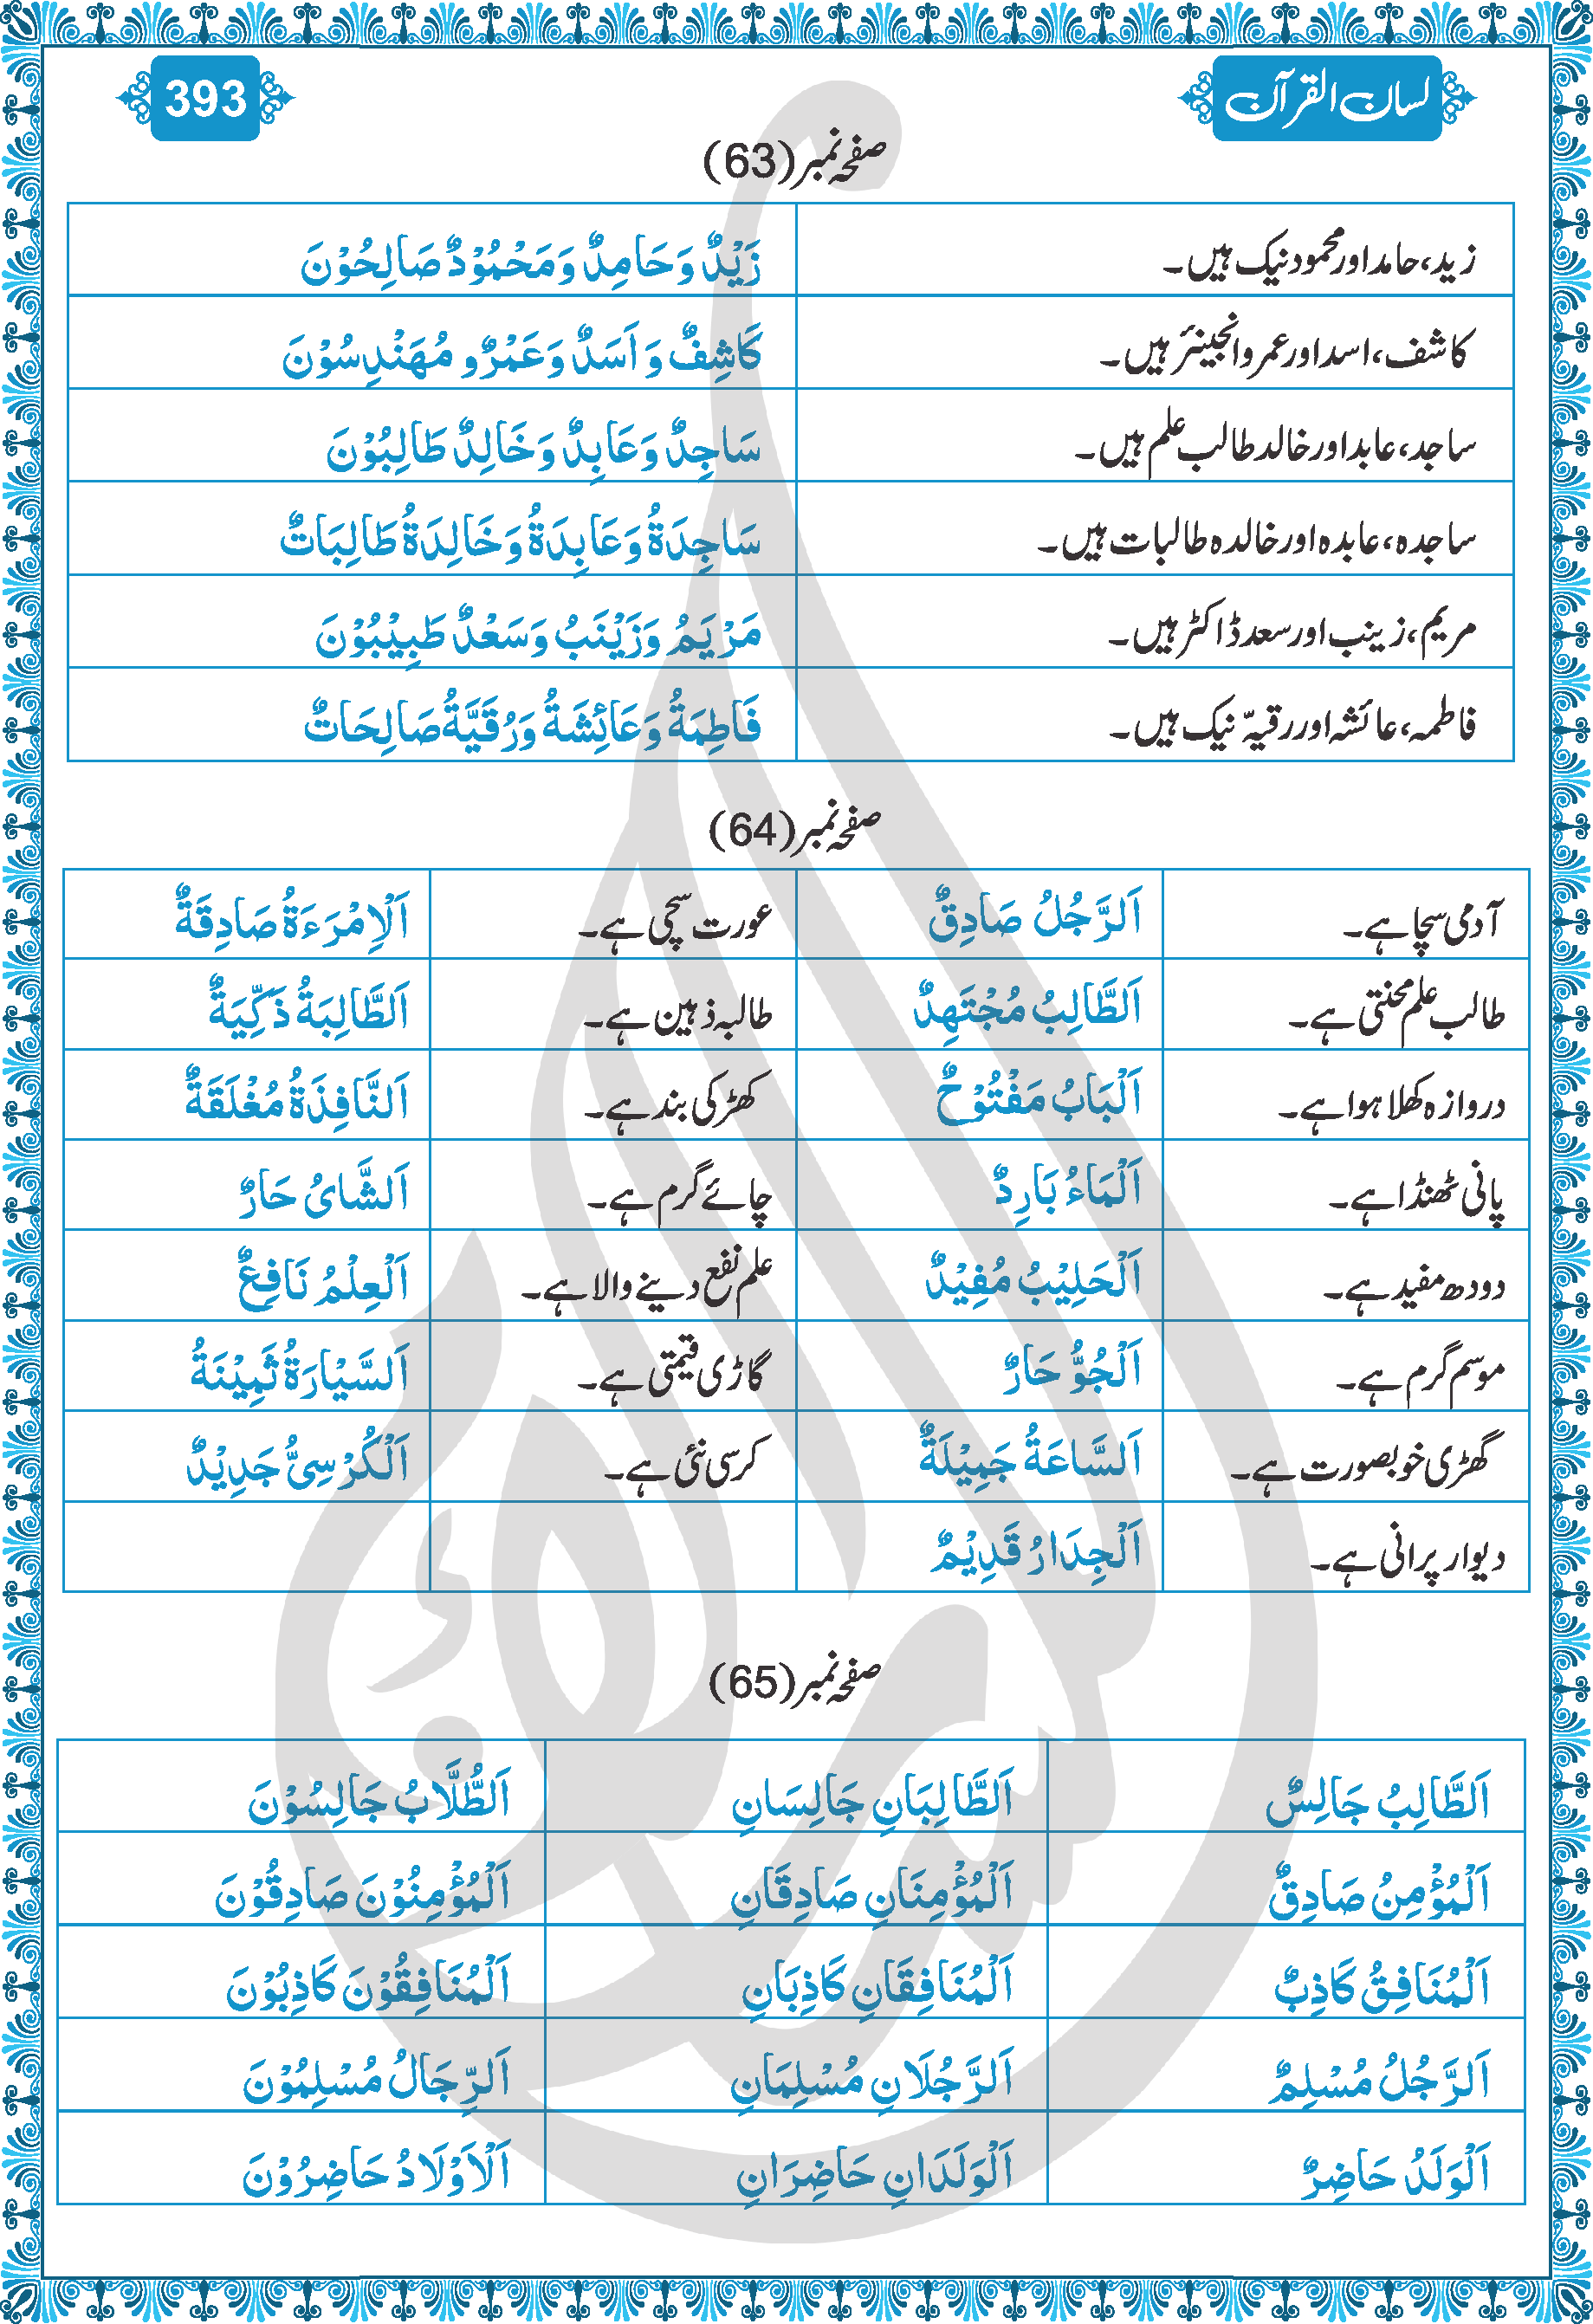 لسان القرآن
393
صفحہ نمبر (63)
زید، حامد اور محمود نیک ہیں۔ زَیْدٌ وَ حَامِدٌ وَ مَحْمُوْدٌ صَالِحُوْنَ
کاشف، اسد اور عمرو انجینئر ہیں۔ کَاشِفٌ وَ اَسَدٌ وَ عَمْرٌو مُهَنْدِسُوْنَ
ساجد، عابد اور خالد طالب علم ہیں۔ سَاجِدٌ وَ عَابِدٌ وَ خَالِدٌ طَالِبُوْنَ
ساجدہ، عابدہ اور خالدہ طالبات ہیں۔ سَاجِدَةُ وَ عَابِدَةُ وَ خَالِدَةُ طَالِبَاتٌ
مریم، زینب اور سعد ڈاکٹر ہیں۔ مَرْیَمُ وَ زَیْنَبُ وَ سَعْدٌ طَبِیْبُوْنَ
فاطمہ، عائشہ اور رقیہّ نیک ہیں۔ فَاطِمَةُ وَ عَائِشَةُ وَ رُقَیَّةُ صَالِحَاتٌ
صفحہ نمبر (64)
آدمی سچا ہے۔ اَلرَّجُلُ صَادِقٌ عورت سچی ہے۔ اَلْاِمْرَءَةُ صَادِقَةٌ
طالب علم محنتی ہے۔ اَلطَّالِبُ مُجْتَهِدٌ طالبہ ذہین ہے۔ اَلطَّالِبَةُ ذَکِّیَةٌ
دروازہ کھلا ہوا ہے۔ اَلْبَابُ مَفْتُوْحٌ کھڑکی بند ہے۔ اَلنَّافِذَةُ مُغْلَقَةٌ
پانی ٹھنڈا ہے۔ اَلْمَاءُ بَارِدٌ چائے گرم ہے۔ اَلشَّایُ حَارٌ
دودھ مفید ہے۔ اَلْحَلِیْبُ مُفِیْدٌ علم نفع دینے والا ہے۔ اَلْعِلْمُ نَافِعٌ
موسم گرم ہے۔ اَلْجُوُّ حَارٌ گاڑی قیمتی ہے۔ اَلسَّیْارَةُ ثَمِیْنَةُ
گھڑی خوبصورت ہے۔ اَلسَّاعَةُ جَمِیْلَةٌ کرسی نئی ہے۔ اَلْکُرْسِیُّ جَدِیْدٌ
دیوار پرانی ہے۔ اَلْجِدَارُ قَدِیْمٌ
صفحہ نمبر (65)
اَلطَّالِبُ جَالِسٌ اَلطَّالِبَانِ جَالِسَانِ اَلطُّلَّابُ جَالِسُوْنَ
اَلْمُؤْمِنُ صَادِقٌ اَلْمُؤْمِنَانِ صَادِقَانِ اَلْمُؤْمِنُوْنَ صَادِقُوْنَ
اَلْمُنَافِقُ کَاذِبٌ اَلْمُنَافِقَانِ کَاذِبَانِ اَلْمُنَافِقُوْنَ کَاذِبُوْنَ
اَلرَّجُلُ مُسْلِمٌ اَلرَّجُلَانِ مُسْلِمَانِ اَلرِّجَالُ مُسْلِمُوْنَ
اَلْوَلَدُ حَاضِرٌ اَلْوَلَدَانِ حَاضِرَانِ اَلْاَوْلَادُ حَاضِرُوْنَ